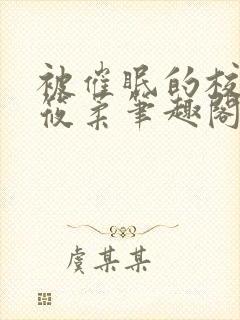 被催眠的校
筱柔笔趣阁
虞某某